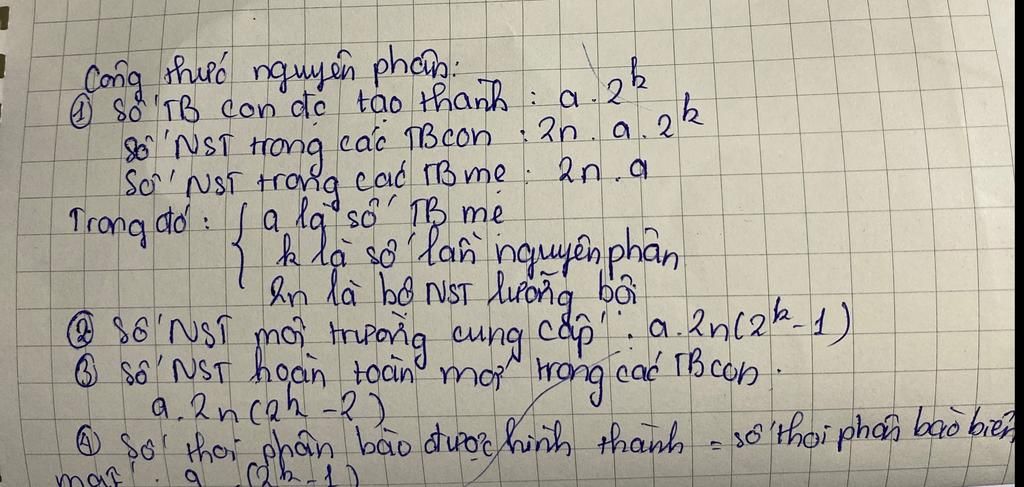 Công thức nguyên phân:
① Số TB con đc tạo thành : a . 2^k
Số NST trong các TB con : 2n . a . 2^k
Số NST trong các TB mẹ : 2n . a
Trong đó : { a là số TB mẹ
k là số lần nguyên phân
2n là bộ NST lưỡng bội
② Số NST môi trường cung cấp : a . 2n (2^k - 1)
③ Số NST hoàn toàn mới trong các TB con .
a . 2n (2^k - 2)
④ Số thoi phân bào được hình thành = số thoi phân bào biến
mất : a . (2^k - 1)